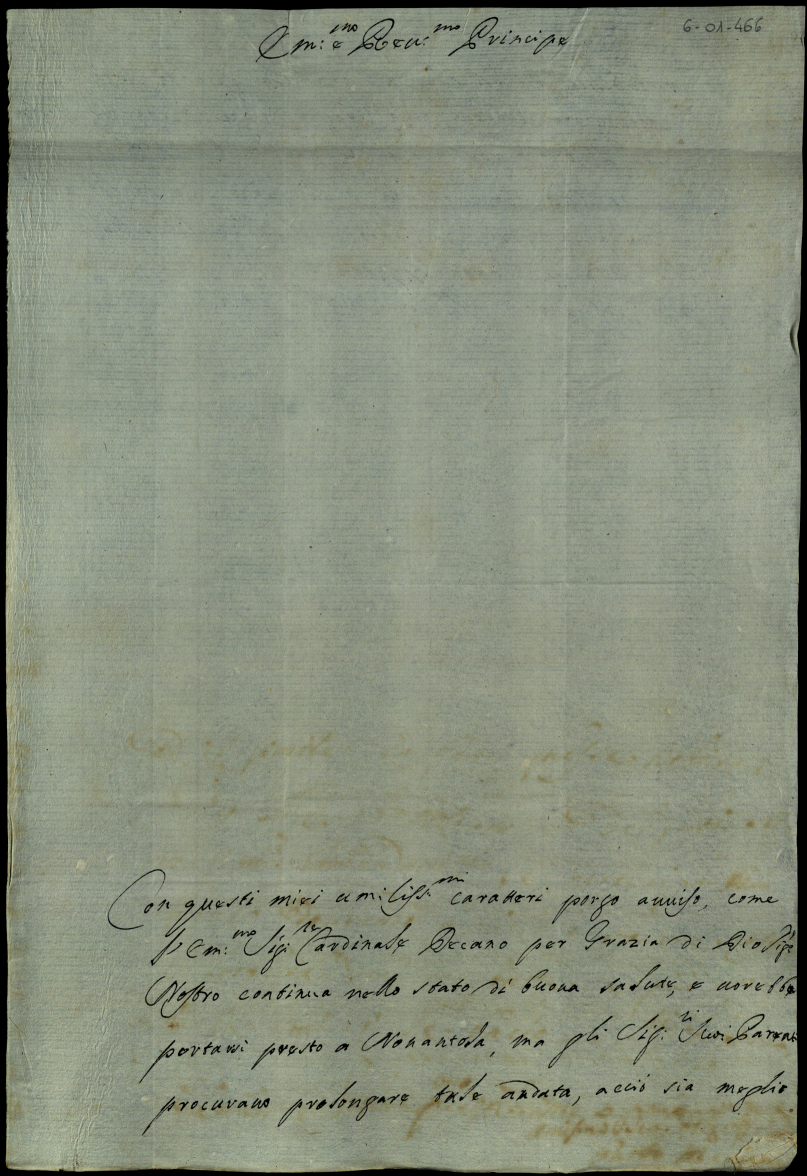 6-01-466
Em:mo e Reu:mo Principe
Con questi miei umiliss:mi caratteri porgo auuiso, come
l'Em:mo Sig:re Cardinale Decano per Grazia di Dio Sig:e
Nostro continua nello stato di buona salute, e uorebbe
portarsi presto a Nonantola, ma gli Sig:ri Suoi Parenti
procurano prolongare tale andata, acciò sia meglio